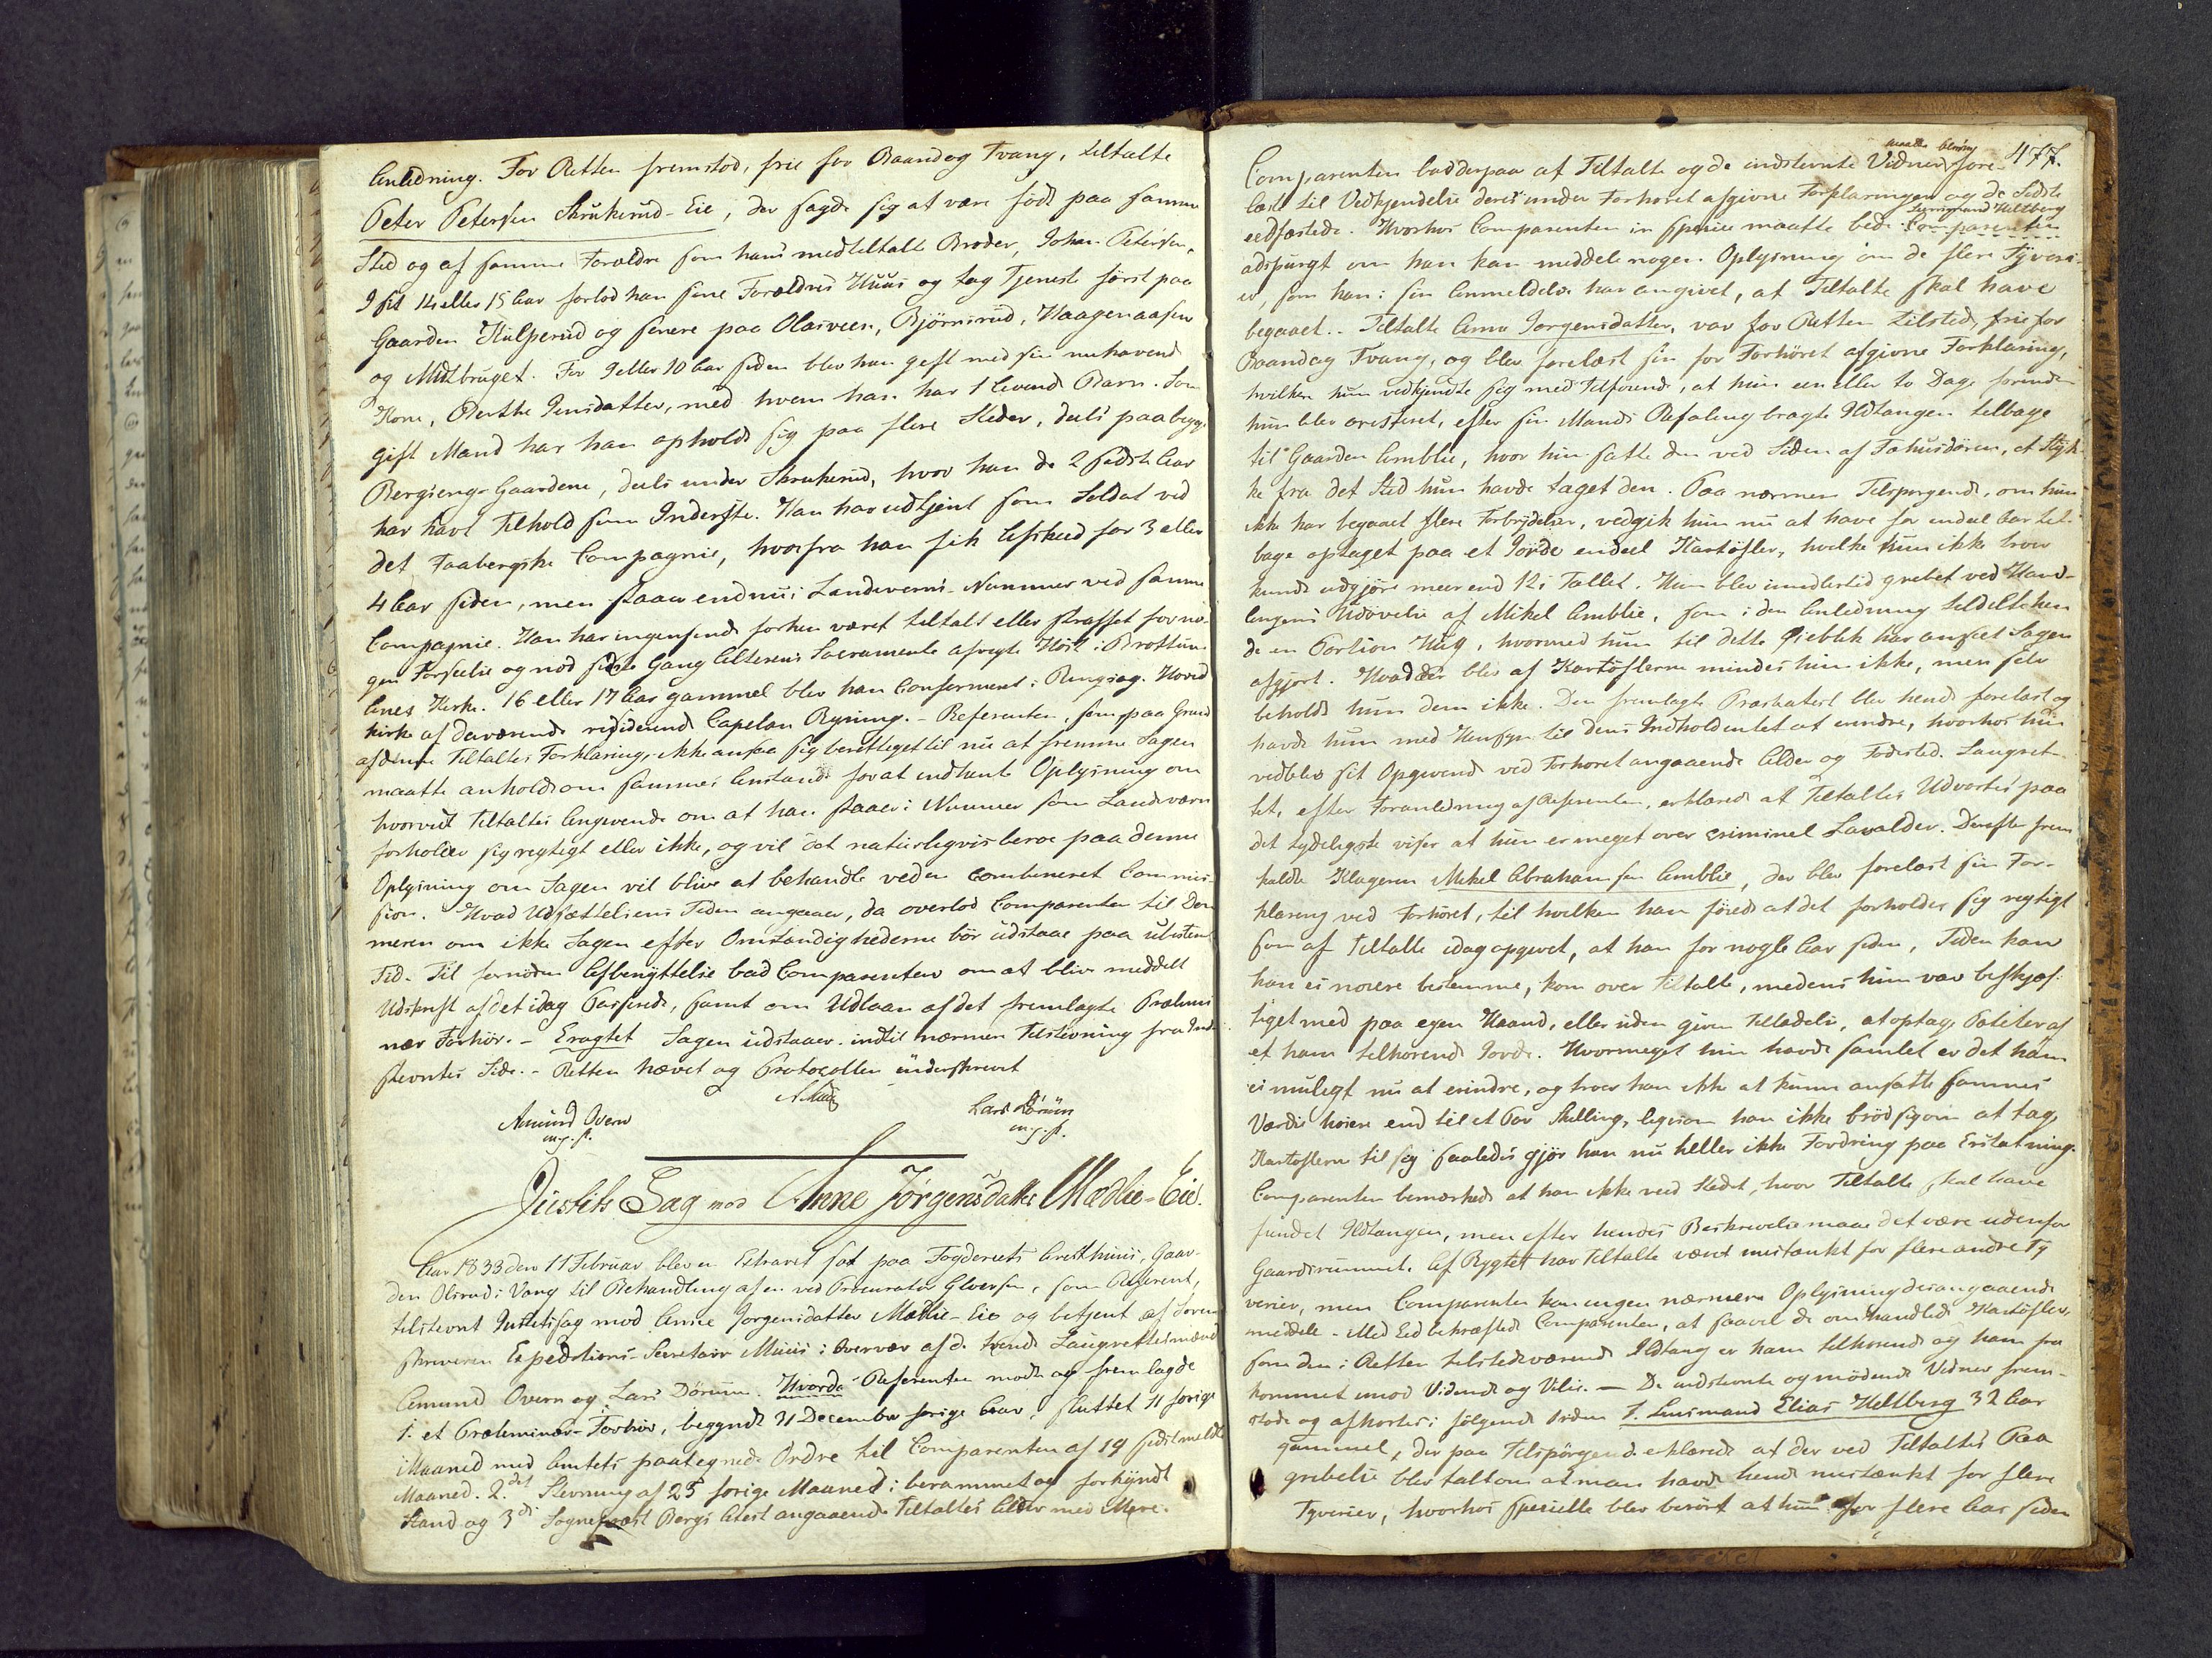 Anledning. For Retten fremstod, frie for Baand og Tvang, tiltalte
Peter Petersen Skrukerud-Eie, der sagde sig at være født paa samme
Sted og af samme Forældre som hans medtiltalte Broder, Johan Petersen.
I sit 14 eller 15 Aar forlod han sine Forældres Huus og tog Tjeneste først paa
Gaarden Kulperud og senere paa Olasveen, Bjørnsrud, Haagenaasen
og Mittbruget. For 9 eller 10 Aar siden blev han gift med sin nuhavende
Kone, Berthe Jensdatter, med hvem han har 1 levende Barn. Som
gift Mand har han opholdt sig paa flere Steder, deels paa
Bergsengs Gaardene, deels under Skrukerud, hvor han de 2 sidste Aar
har havt Tilhold som Inderste. Han har udtjent som Soldat ved
det Faabergske Compagnie, hvorfra han fik Afskeed for 3 eller
4 Aar siden, men staaer endnu i Landeværns-Nummer ved samme
Compagnie. Han har ingensinde forhen været tiltalt eller straffet for no-
gen Forseelse og nød sidste Gang Alterens Sacramente afvigte Høst i Brøttum
Anex Kirke. 16 eller 17 Aar gammel blev han Confirmeret i Ringsag. Hoved
kirke af daværende residerende Capelan Ryning. - Referenten, som paa Grund
af denne Tiltaltes Forklaring, ikke ansaa sig berettiget til nu at fremme Sagen
maatte anholde om sammes Anstand for at indhente Oplysning om
hvorvidt Tiltaltes Angivende om at han staaer i Nummer som Landeværn
forholder sig rigtigt eller ikke, og vil det naturligvis beroe paa denne
Oplysning om Sagen vil blive at behandle ved en combineret Commis-
sion. Hvad Udsættelsens Tiden angaaer, da overlod Comparenten til Dom
meren om ikke Sagen efter Omstændighederne bør udstaae paa ubestemt
Tid. Til fornøden Afbenyttelse bad Comparenten om at blive meddelt
Udskrift af det idag Passerede, samt om Udlaan af det fremlagte Prælimi
nær Forhør. - Eragtet Sagen udstaaer indtil nærmere Tilstevning fra Ind-
stevntes Side. - Retten hævet og Protocollen underskrevet
Amund Overn
m. p. P.
Lars Dørum
m. p. P.
Justits Sag mod Anne Jørgensdatter Mælie-Eie.
Aar 1833 den 11 Februar blev en Extraret sat paa Fogderiets Arresthuus, Gaar-
den Olsrud i Vang til Behandling af en ved Procurator Gløersen, som Referent,
tilstevnt Justitssag mod Anne Jørgensdatter Mælie-Eie og betjent af Soren
skriveren Expeditions-Secretair Muus i Overvær af de tvende Laugrettesmænd
Amund Overn og Lars Dørum. Hvorda Referenten mødte og fremlagde
1. et Præliminær-Forhør, begyndt 31 December forrige Aar, sluttet 11 forige
Maaned med Amtets paategnede Ordre til Comparenten af 19 sidstmeldte
Maaned. 2det Stevning af 25 forige Maaned i berammet og forkyndt
Stand og 3di Sogneprest Bergs Attest angaaende Tiltaltes Alder med Mere.
477.
maatte blive
Comparenten bad derpaa at Tiltalte og de indstevnte Vidner fore-
læst til Vedkjendelse deres under Forhøret afgivne Forklaringer og de Sidste
Lensmand Heltberg
eedfæstede. Hvorhos Comparenten in specie maatte bede Comparenten
adspurgt om han kan meddele nogen Oplysning om de flere Tyveri-
er, som han i sin Anmeldelse har angivet, at Tiltalte skal have
begaaet.. Tiltalte Anne Jørgensdatter, var for Retten tilstede frie for
Baand og Tvang, og blev forelæst sin for Forhøret afgivne Forklaring,
hvilken hun vedkjendte sig med Tilføiende, at hun een eller to Dage forinden
hun blev arresteret, efter sin Mands Befaling bragte Ildtangen tilbage
til Gaarden Amblie, hvor hun satte den ved Siden af Fæhusdøren, et Styk-
ke fra det Sted hun havde taget den. Paa nærmere Tilspørgende, om hun
ikke har begaaet flere Forbrydelser, vedgik hun nu at have for endeel Aar til-
bage optaget paa et Jorde endeel Kartøfler, hvilke hun ikke troer
kunde udgjøre meer end 12 i Tallet. Hun blev imidlertid grebet ved Hand-
lingens Udøvelse af Mikel Amblie, som i den Anledning tildelte hen
de en Portion Hug, hvormed hun til dette Øieblik har anseet Sagen
afgjort. Hvad der blev af Kartøflerne mindes hun ikke, men selv
beholdt hun dem ikke. Den fremlagte Præsteattest blev hende forelæst og
havde hun med Hensyn til dens Indhold intet at erindre, hvorhos hun
vedblev sit Opgivende ved Forhøret angaaende Alder og Fødested. Laugret-
tet, efter Foranledning af Referenten, erklærede at Tiltaltes Udvortes paa
det tydeligste viser at hun er meget over criminel Lavalder. Derefter frem
kaldte Klageren Mikel Abrahamsen Amblie, der blev forelæst sin For-
klaring ved Forhøret, til hvilken han føiede at det forholder sig rigtigt
som af Tiltalte idag opgivet, at han for nogle Aar siden, Tiden kan
han ei nøiere bestemme, kom over Tiltalte, medens hun var beskjæf-
tiget med paa egen Haand, eller uden given Tilladelse, at optage Poteter af
et ham tilhørende Jorde. Hvormeget hun havde samlet er det ham
ei muligt nu at erindre, og troer han ikke at kunne ansætte sammes
Værdie høiere end til et Par Skilling, ligesom han ikke brød sig om at tage
Kartøflerne til sig saaledes gjør han nu heller ikke Fordring paa Erstatning.
Comparenten bemærkede at han ikke veed Stedet, hvor Tiltalte skal have
fundet Ildtangen, men efter hendes Beskrivelse maae det være udenfor
Gaardsrummet. Af Rygtet har Tiltalte været mistænkt for flere andre Ty
verier, men Comparenten kan ingen nærmere Oplysning desangaaende
meddele. Med Eed bekræftede Comparenten, at saavel de omhandlede Kartøfler,
som den i Retten tilstedeværende Ildtang er ham tilhørende og ham fra
kommet imod Vidende og Villie. — De indstevnte og mødende Vidner frem-
stode og afhørtes i følgende Orden 1. Lensmand Elias Heltberg 32 Aar
gammel, der paa Tilspørgende erklærede at der ved Tiltaltes Paa
gribelse blev talt om at man havde hende mistænkt for flere
Tyverier, hvorhos specielle blev berørt at hun for flere Aar siden